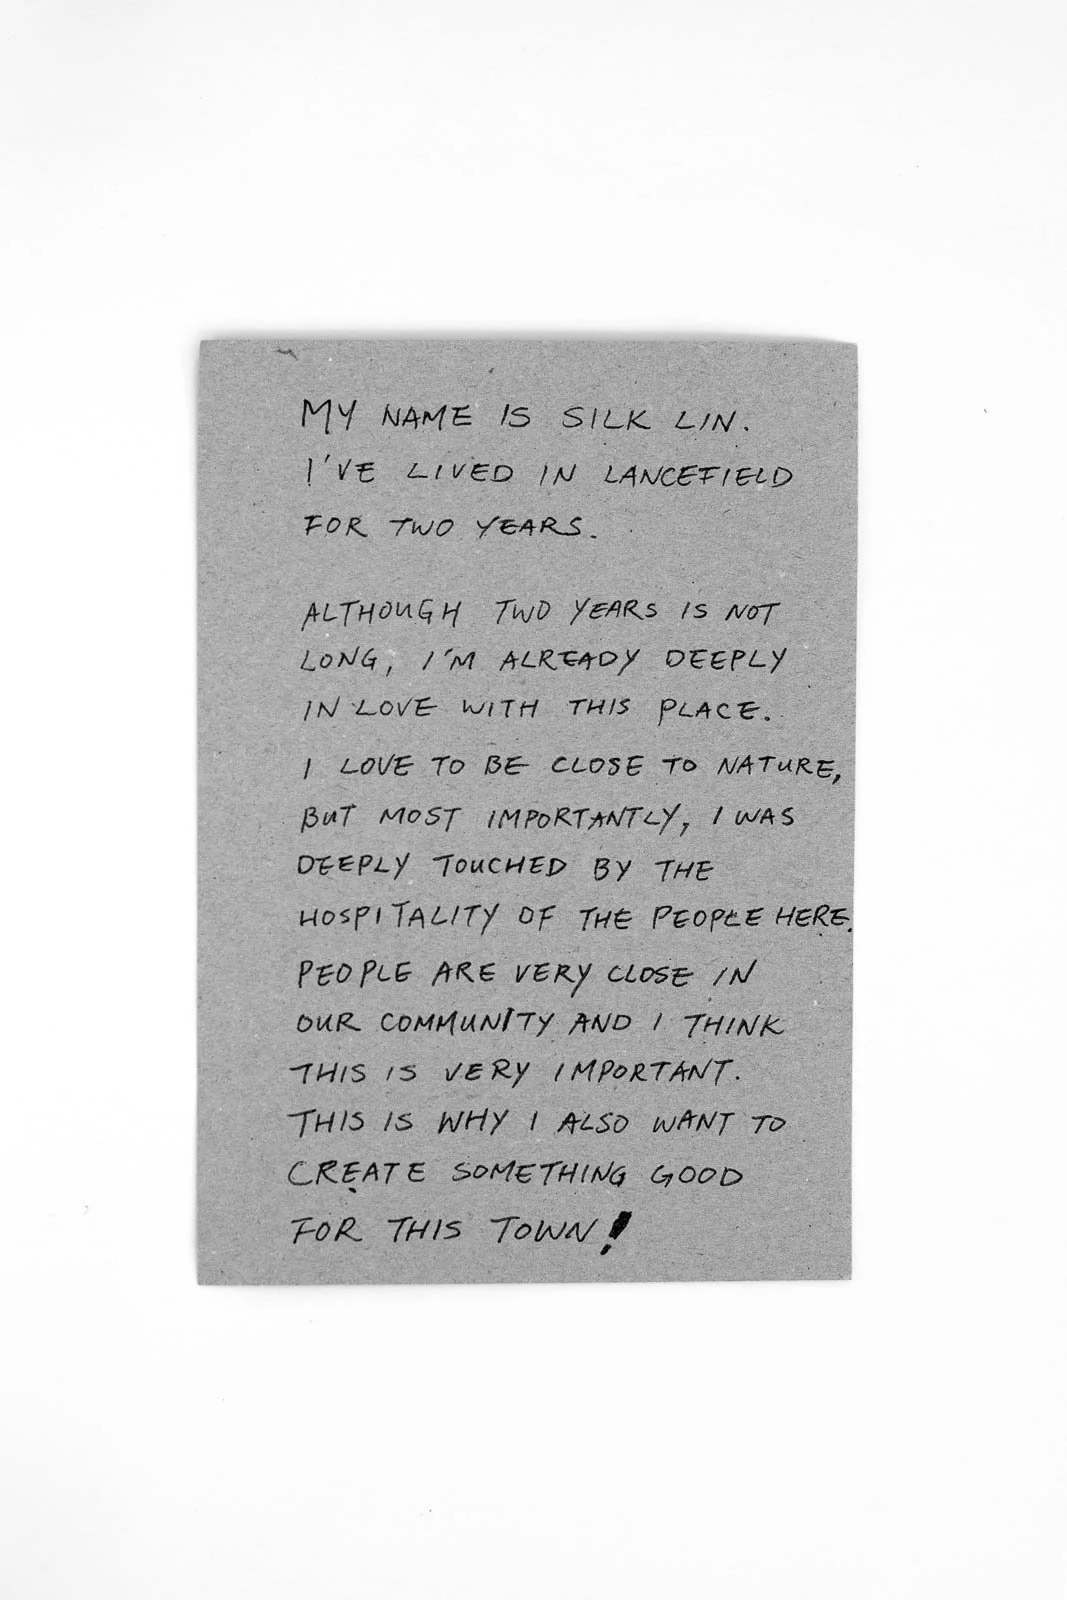 MY NAME IS SILK LIN.
I'VE LIVED IN LANCEFIELD
FOR TWO YEARS.
ALTHOUGH TWO YEARS IS NOT
LONG, I'M ALREADY DEEPLY
IN LOVE WITH THIS PLACE.
I LOVE TO BE CLOSE TO NATURE,
BUT MOST IMPORTANTLY, I WAS
DEEPLY TOUCHED BY THE
HOSPITALITY OF THE PEOPLE HERE.
PEOPLE ARE VERY CLOSE IN
OUR COMMUNITY AND I THINK
THIS IS VERY IMPORTANT.
THIS IS WHY I ALSO WANT TO
CREATE SOMETHING GOOD
FOR THIS TOWN!